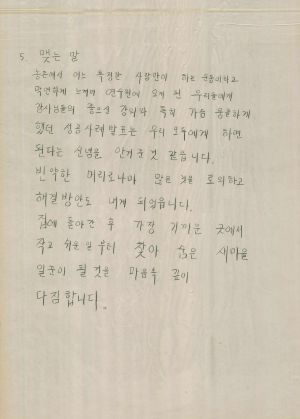 5. 맺는 말
농촌에서 어느 특정한 사람만이 하는 운동이라고
막연하게 느끼며 연수원에 오게 된 우리들에게
강사님들의 좋으신 강의와 특히 가슴 뭉클하게
했던 성공사례발표는 우리 모두에게 하면
된다는 신념을 안겨준 것 같습니다.
빈약한 머리로나마 많은 것을 토의하고
해결방안도 내게 되었읍니다.
집에 돌아간 후 가장 가까운 곳에서
작고 쉬운 일 부터 찾아 숨은 새마을
일꾼이 될 것을 마음속 깊이
다짐합니다.